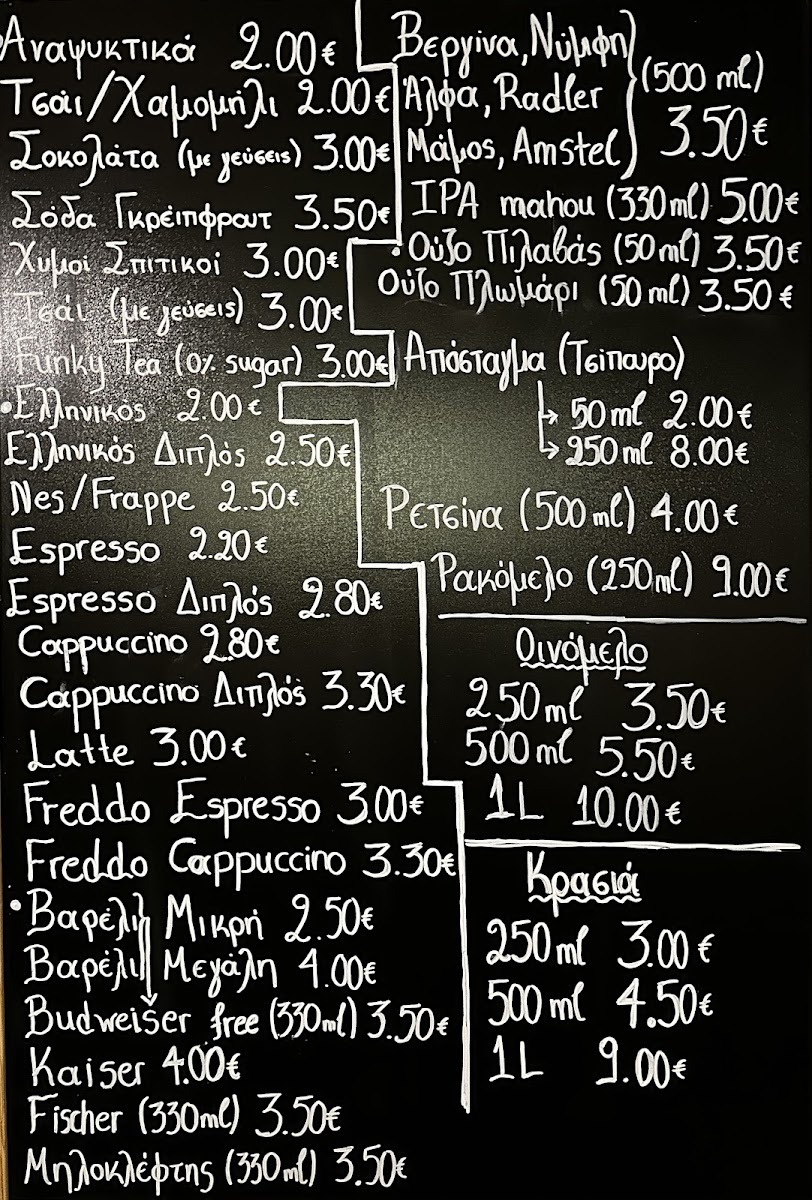 Αναψυκτικά 2.00€
Τσάι/Χαμομήλι 2.00€
Σοκολάτα (με γεύσεις) 3.00€
Σόδα Γκρέιπφρουτ 3.50€
Χυμοί Σπιτικοί 3.00€
Τσάι (με γεύσεις) 3.00€
Funky Tea (0% sugar) 3.00€
•Ελληνικός 2.00€
Ελληνικός Διπλός 2.50€
Nes/Frappe 2.50€
Espresso 2.20€
Espresso Διπλός 2.80€
Cappuccino 2.80€
Cappuccino Διπλός 3.30€
Latte 3.00€
Freddo Espresso 3.00€
Freddo Cappuccino 3.30€
•Βαρέλι Μικρή 2.50€
Βαρέλι Μεγάλη 4.00€
Budweiser free (330ml) 3.50€
Kaiser 4.00€
Fischer (330ml) 3.50€
Μηλοκλέφτης (330ml) 3.50€
Βεργίνα, Νύμφη
Άλφα, Radler
Μάμος, Amstel
(500 ml)
3.50€
IPA mahou (330ml) 5.00€
•Ούζο Πιλαβάς (50ml) 3.50€
Ούζο Πλωμάρι (50ml) 3.50€
Απόσταγμα (Τσίπουρο)
50ml 2.00€
250ml 8.00€
Ρετσίνα (500ml) 4.00€
Ρακόμελο (250ml) 9.00€
Οινόμελο
250ml 3.50€
500ml 5.50€
1L 10.00€
Κρασιά
250ml 3.00€
500ml 4.50€
1L 9.00€